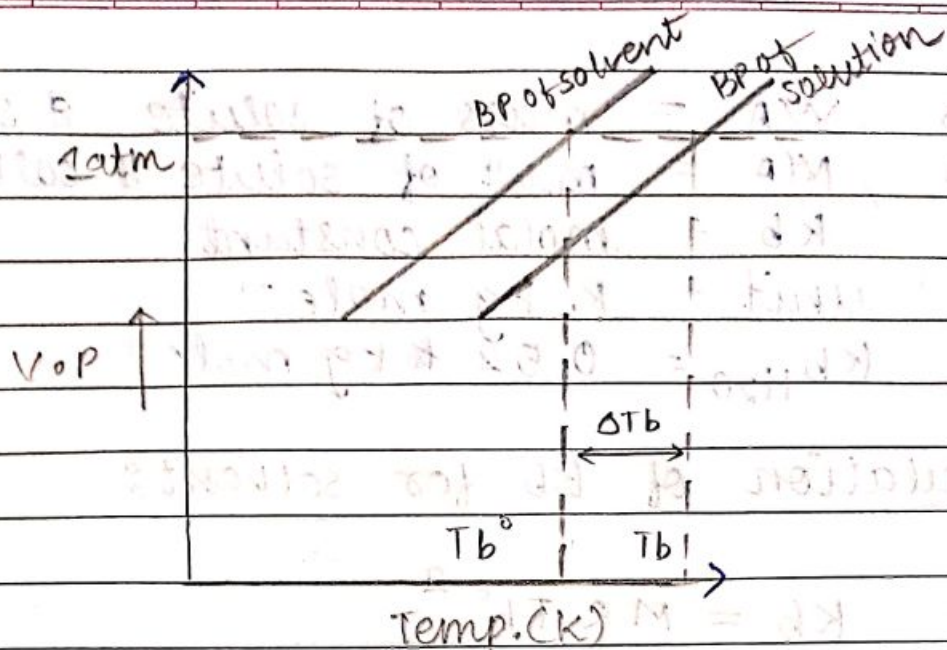 BP of solvent
BP of
solution
1atm
V.P
ΔTb
Tb°
Tb
Temp.(K)